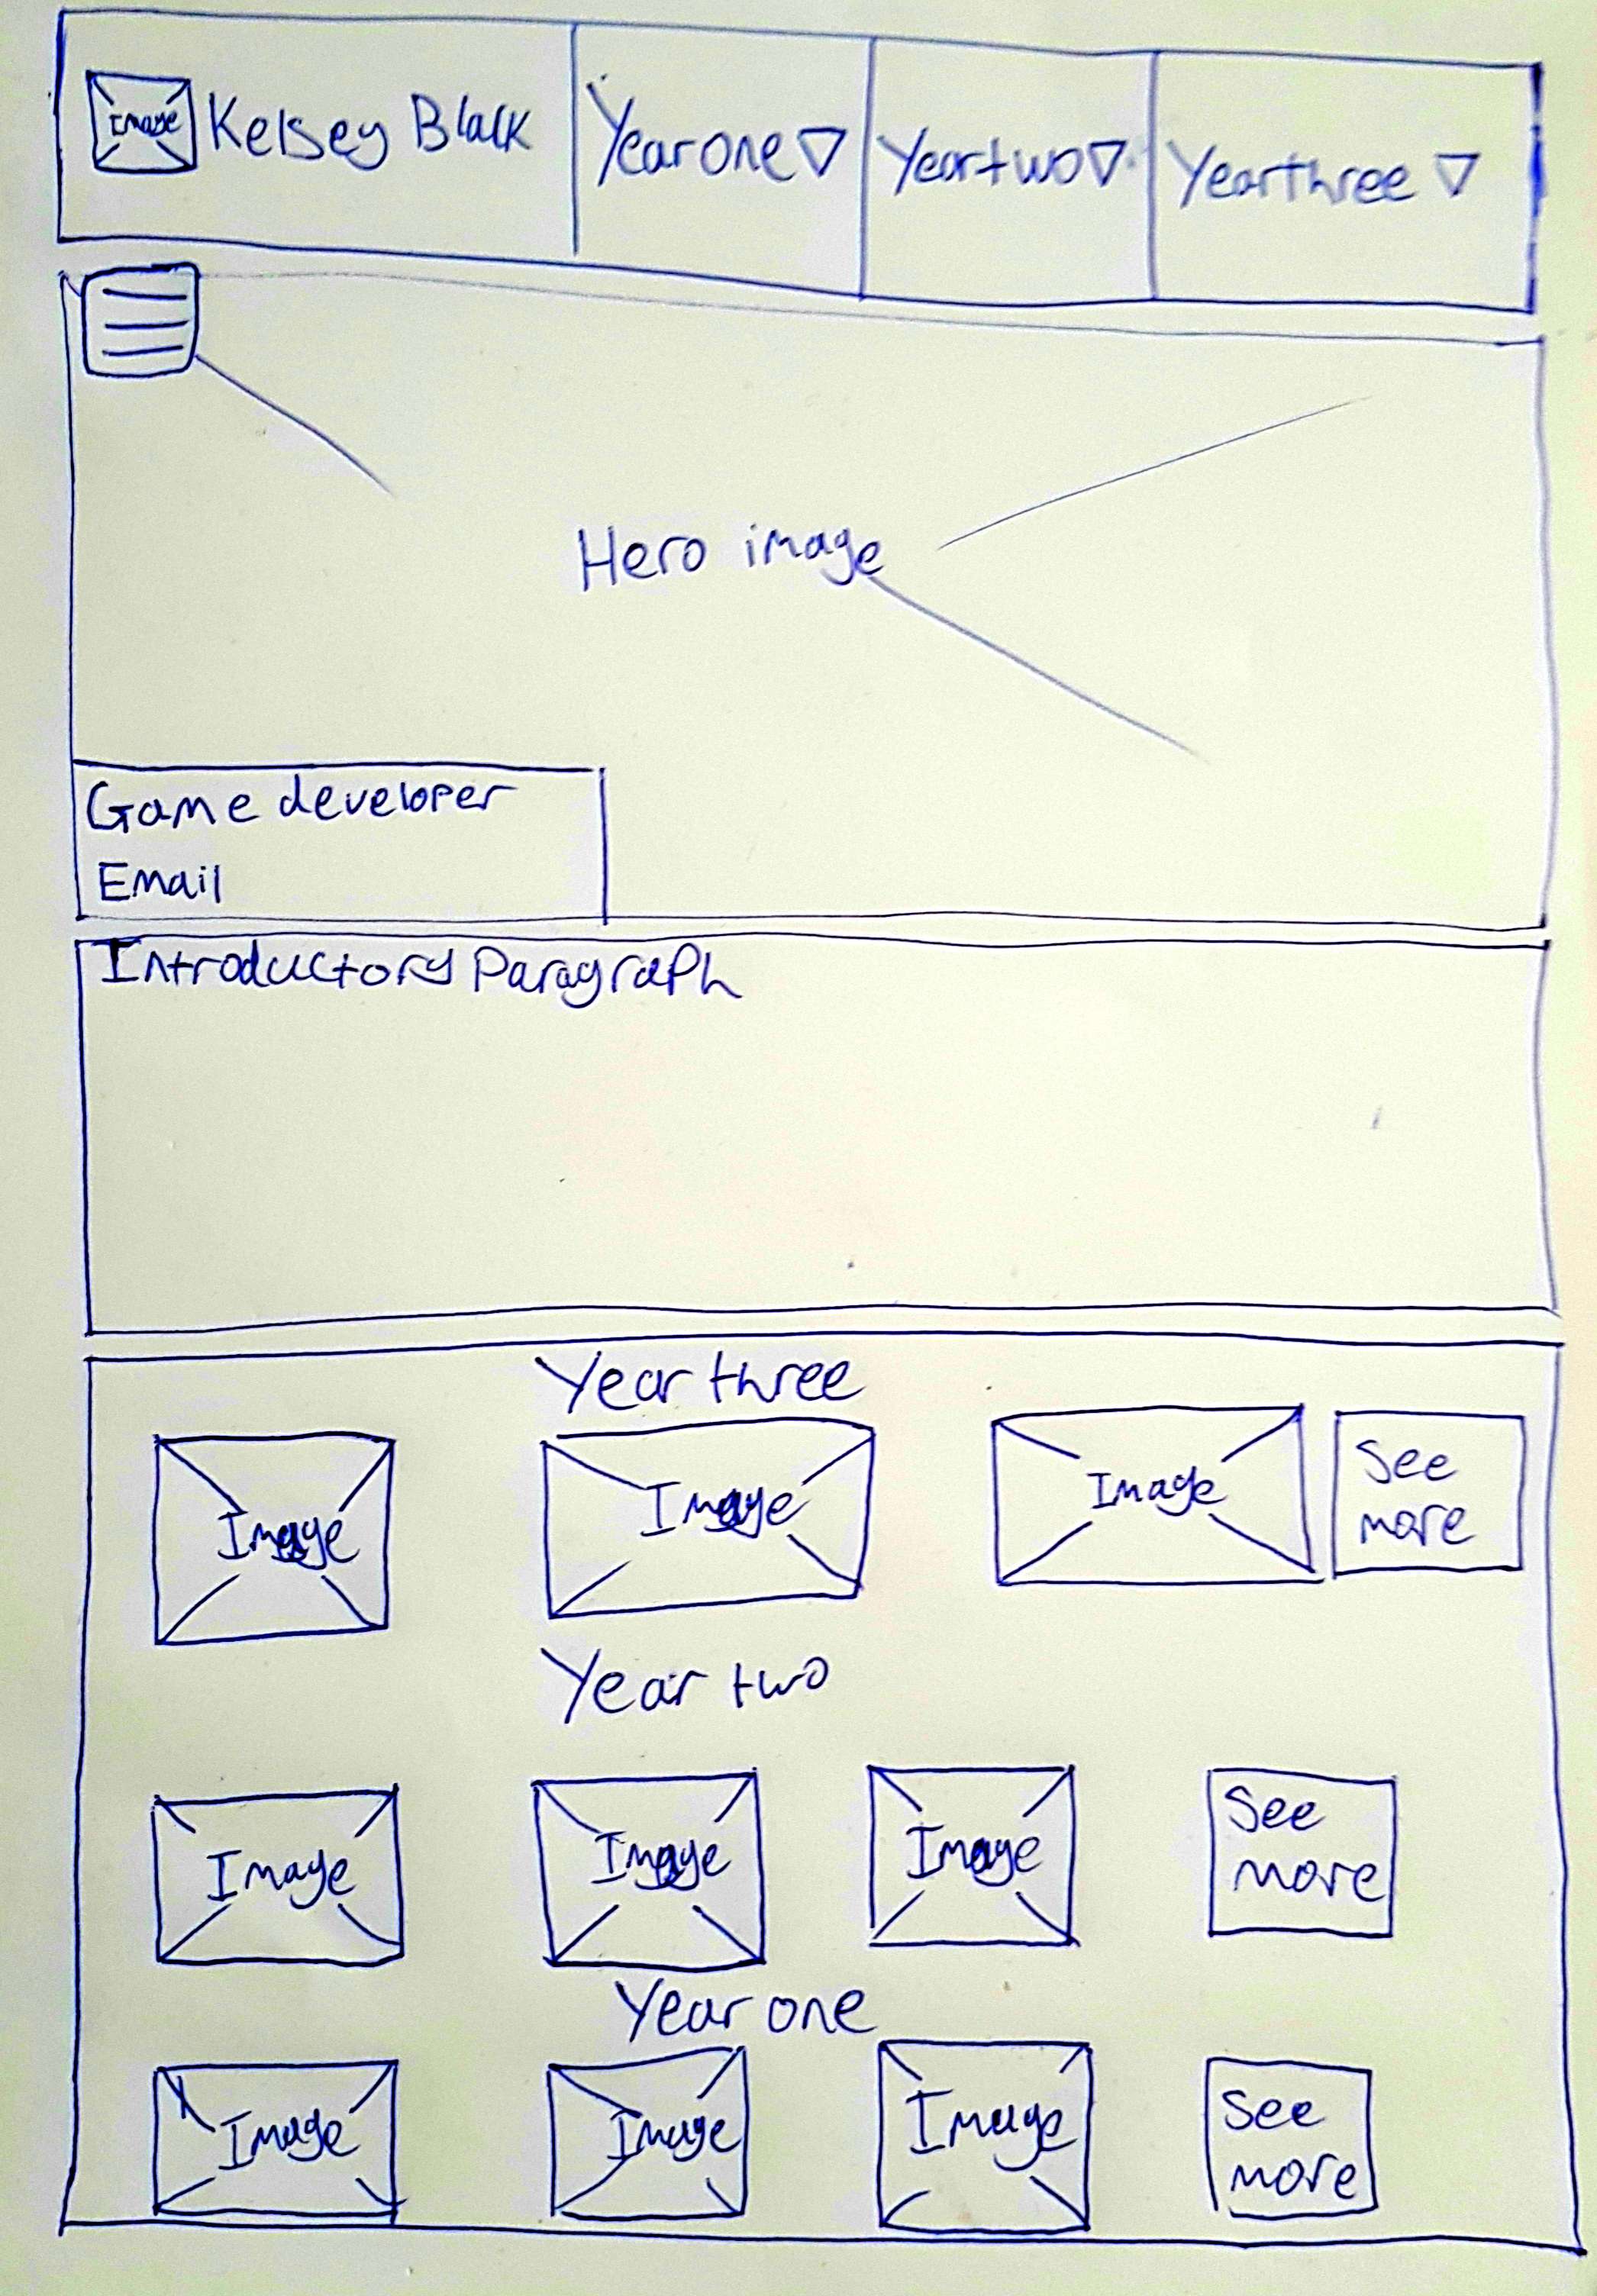 Image Kelsey Black Year one Year two Year three
Hero image
Game developer
Email
Introductory Paragraph
Year three
Image Image Image See more
Year two
Image Image Image See more
Year one
Image Image Image See more